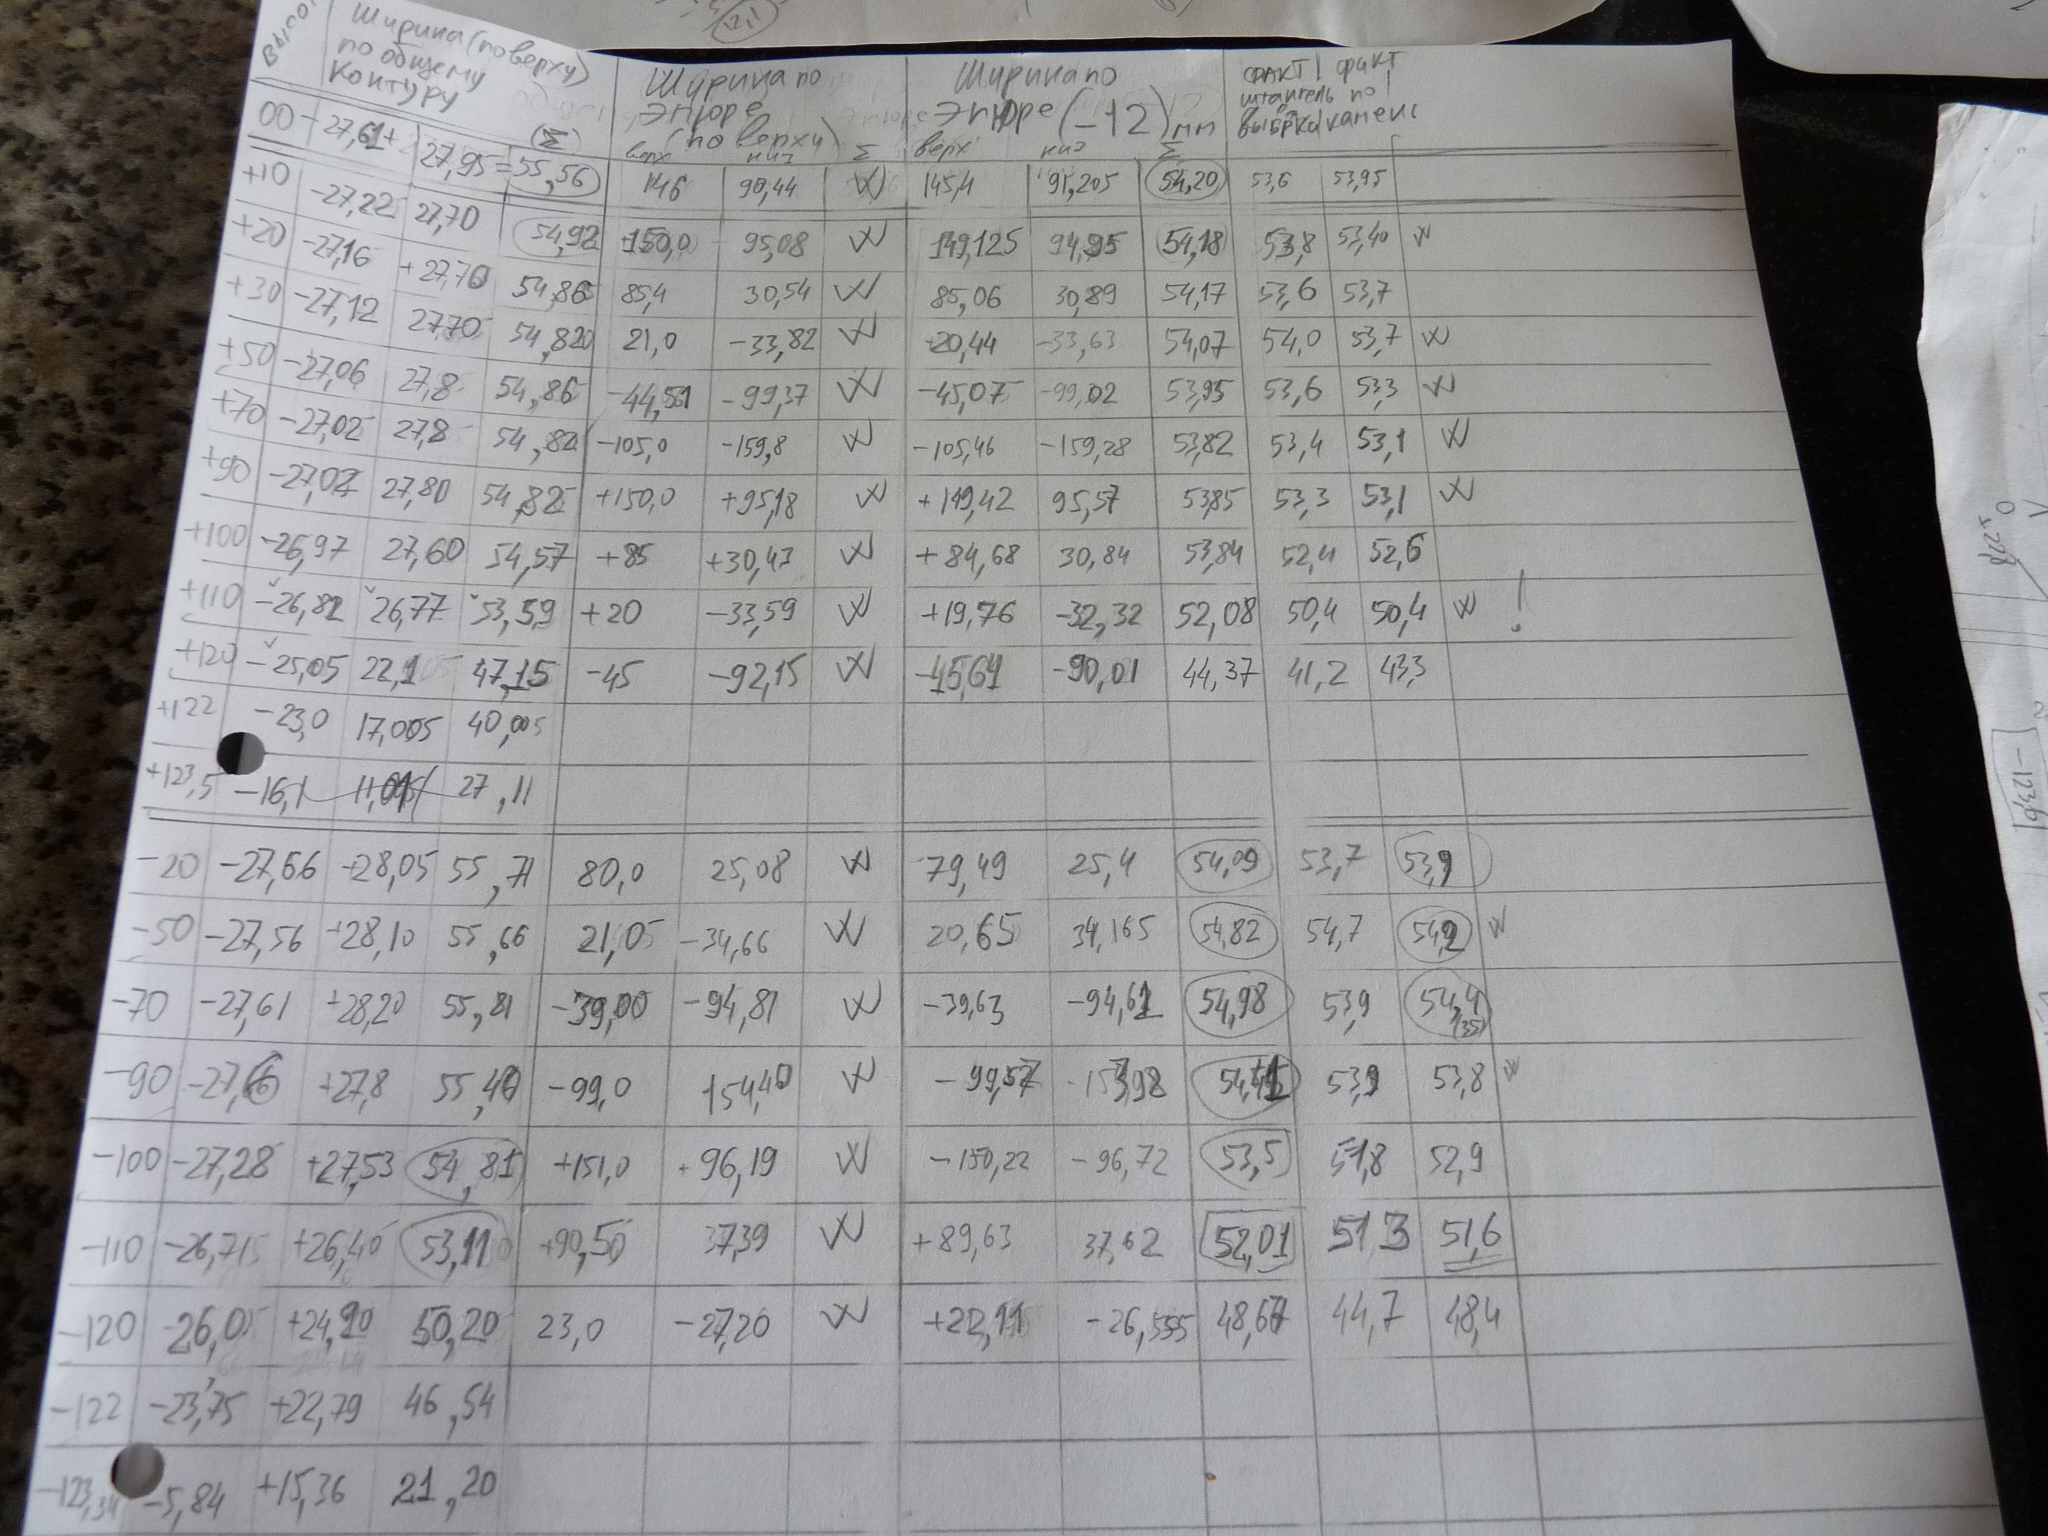 Ширина (по верху)
по общему
контуру
(Σ)
Ширина по
эпюре
(по верху)
верх низ Σ
Ширина по
эпюре (-12) мм
верх низ Σ
ФАКТ | факт
штангель по
выборка камень
00 -27,61 + 27,95 = 55,56 146 90,44 W 145,4 91,205 54,20 53,6 53,95
+10 -27,22 27,70 54,92 150,0 95,08 W 149,125 94,95 54,18 53,8 53,40 W
+20 -27,16 +27,70 54,86 85,4 30,54 W 85,06 30,89 54,17 53,6 53,7
+30 -27,12 27,70 54,820 21,0 -33,82 W 20,44 -33,63 54,07 54,0 53,7 W
+50 -27,06 27,8 54,86 -44,51 -99,37 W -45,07 -99,02 53,95 53,6 53,3 W
+70 -27,02 27,8 54,82 -105,0 -159,8 W -105,46 -159,28 53,82 53,4 53,1 W
+90 -27,02 27,80 54,82 +150,0 +95,18 W +149,42 95,57 53,85 53,3 53,1 W
+100 -26,97 27,60 54,57 +85 +30,43 W +84,68 30,84 53,84 52,4 52,6
+110 -26,82 26,77 53,59 +20 -33,59 W +19,76 -32,32 52,08 50,4 50,4 W !
+120 -25,05 22,1 47,15 -45 -92,15 W -45,64 -90,01 44,37 41,2 43,3
+122 -23,0 17,005 40,005
+123,5 -16,1 27,11
-20 -27,66 +28,05 55,71 80,0 25,08 W 79,49 25,4 54,09 53,7 53,9
-50 -27,56 +28,10 55,66 21,05 -34,66 W 20,65 34,165 54,82 54,7 54,2 W
-70 -27,61 +28,20 55,81 -39,00 -94,81 W -39,63 -94,61 54,98 53,9 54,4
(35)
-90 -27,6 +27,8 55,40 -99,0 154,40 W -99,57 -153,98 54,41 53,9 53,8 W
-100 -27,28 +27,53 54,81 +151,0 96,19 W -150,22 -96,72 53,5 51,8 52,9
-110 -26,715 +26,40 53,11 +90,50 37,39 W +89,63 37,62 52,01 51 3 51,6
-120 -26,05 +24,20 50,20 23,0 -27,20 W +22,11 -26,555 48,67 44,7 48,4
-122 -23,75 +22,79 46,54
-123,34 -5,84 +15,36 21,20